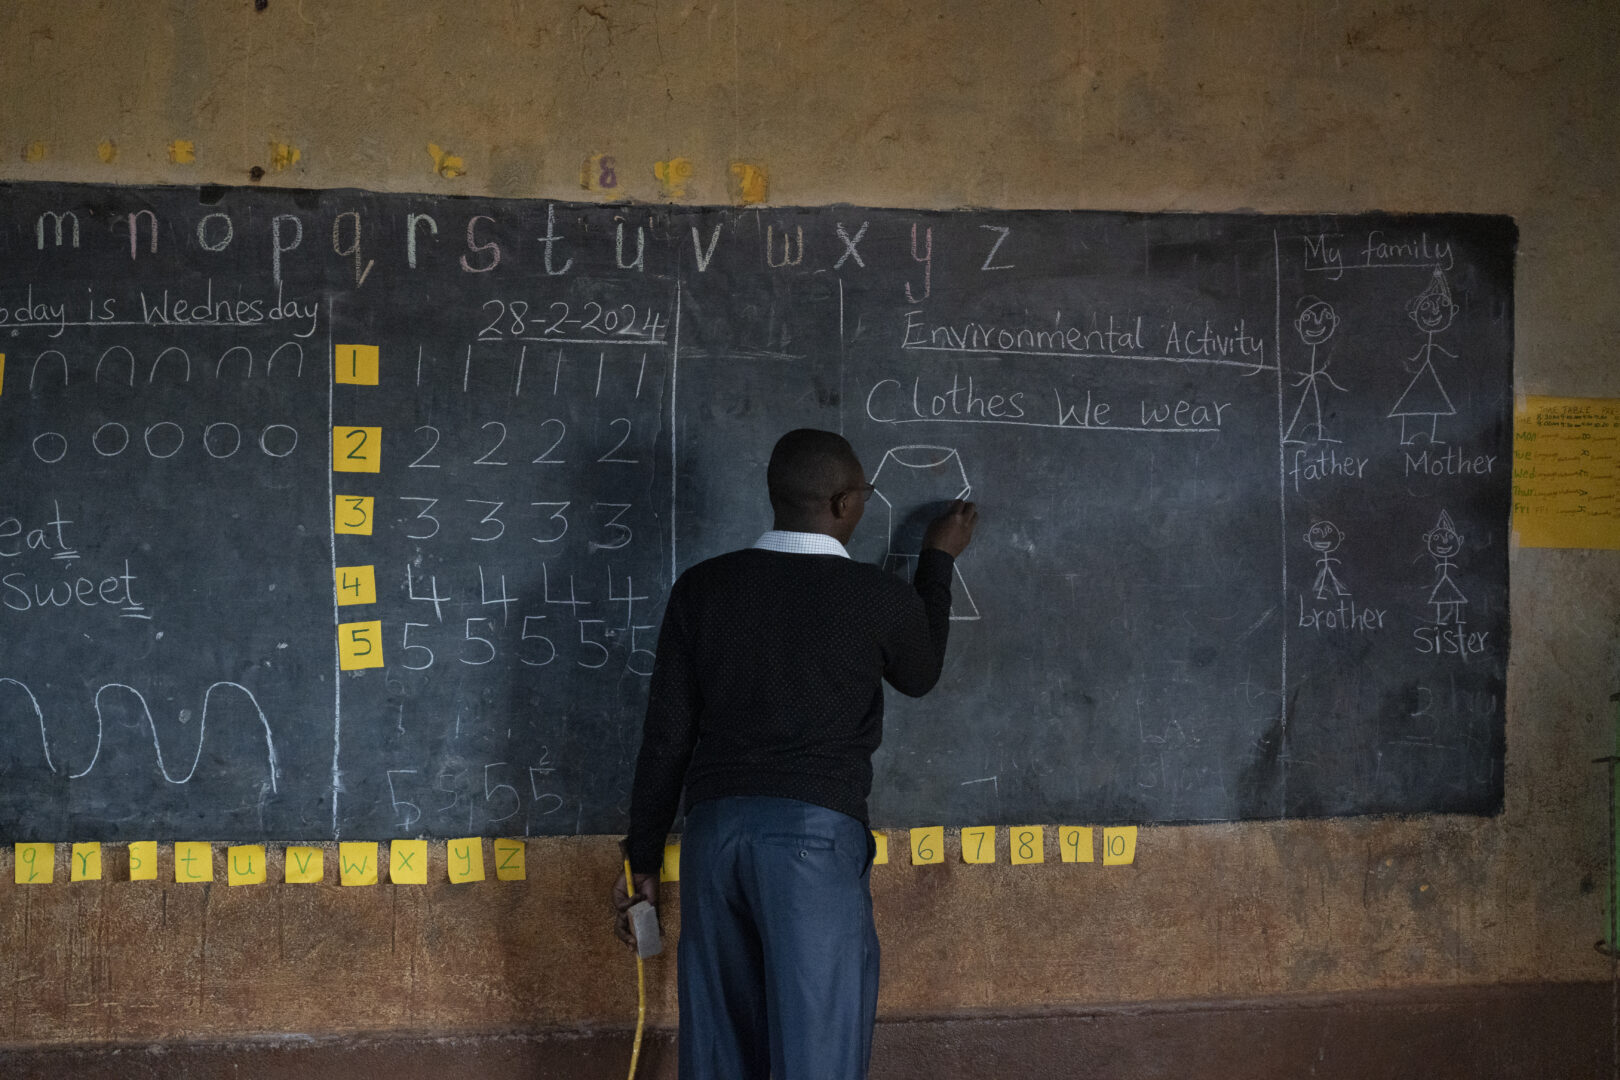 8
m n o p q r s t u v w x y z
oday is Wednesday
28-2-2024
1 1 1 1 1 1 1
2 2 2 2 2
3 3 3 3 3
4 4 4 4 4
5 5 5 5 5 5
eat
sweet
5 5 5 5
2
Environmental Activity
Clothes We wear
My family
father Mother
brother
sister
TIME TABLE
Mon
Tue
Wed
Thur
Fri
q r s t u v w x y z
6 7 8 9 10